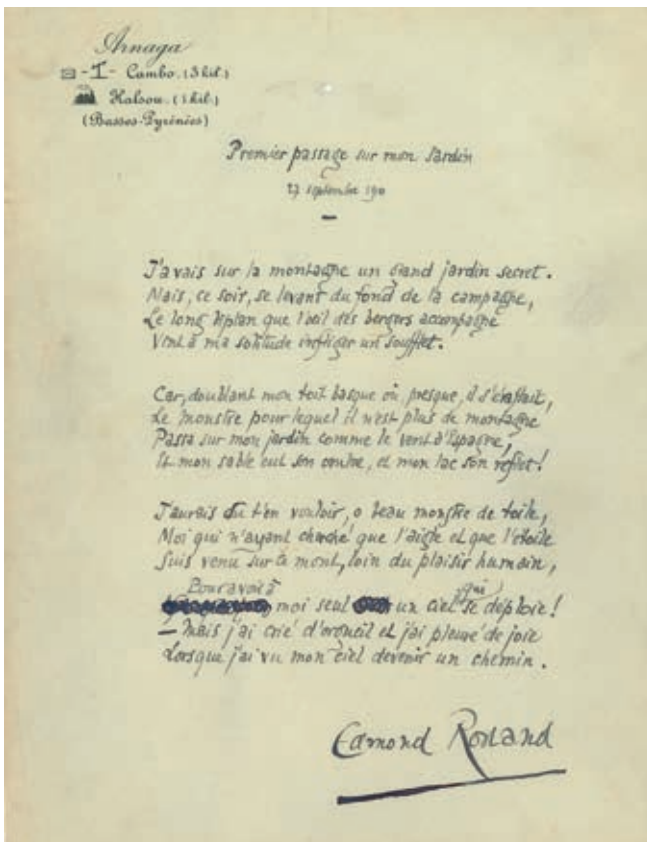 Arnaga
- I - Cambo. (3 kil.)
Halsou. (1 kil.)
(Basses-Pyrénées)
Premier passage sur mon Jardin
27 septembre 190
J'avais sur la montagne un grand jardin secret.
Mais, ce soir, se levant du fond de la campagne,
Le long biplan que l'oeil des bergers accompagne
Vint à ma solitude infliger un soufflet.
Car, doublant mon toit basque où, presque, il s'éraflait,
Le monstre pour lequel il n'est plus de montagne
Passa sur mon jardin comme le vent d'Espagne,
Et mon sable eut son ombre, et mon lac son reflet!
J'aurais dû t'en vouloir, o beau monstre de toile,
Moi qui n'ayant cherché que l'aigle et que l'étoile
Suis venu sur ce mont, loin du plaisir humain,
Pour avoir à moi seul un ciel qui se déploie!
— Mais j'ai crié d'orgueil et j'ai pleuré de joie
Lorsque j'ai vu mon ciel devenir un chemin.
Edmond Rostand